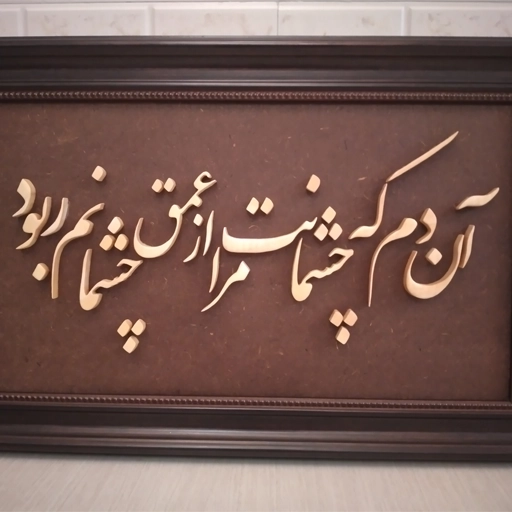 آن دم که چشمانت مرا از عمق چشمانم ربود